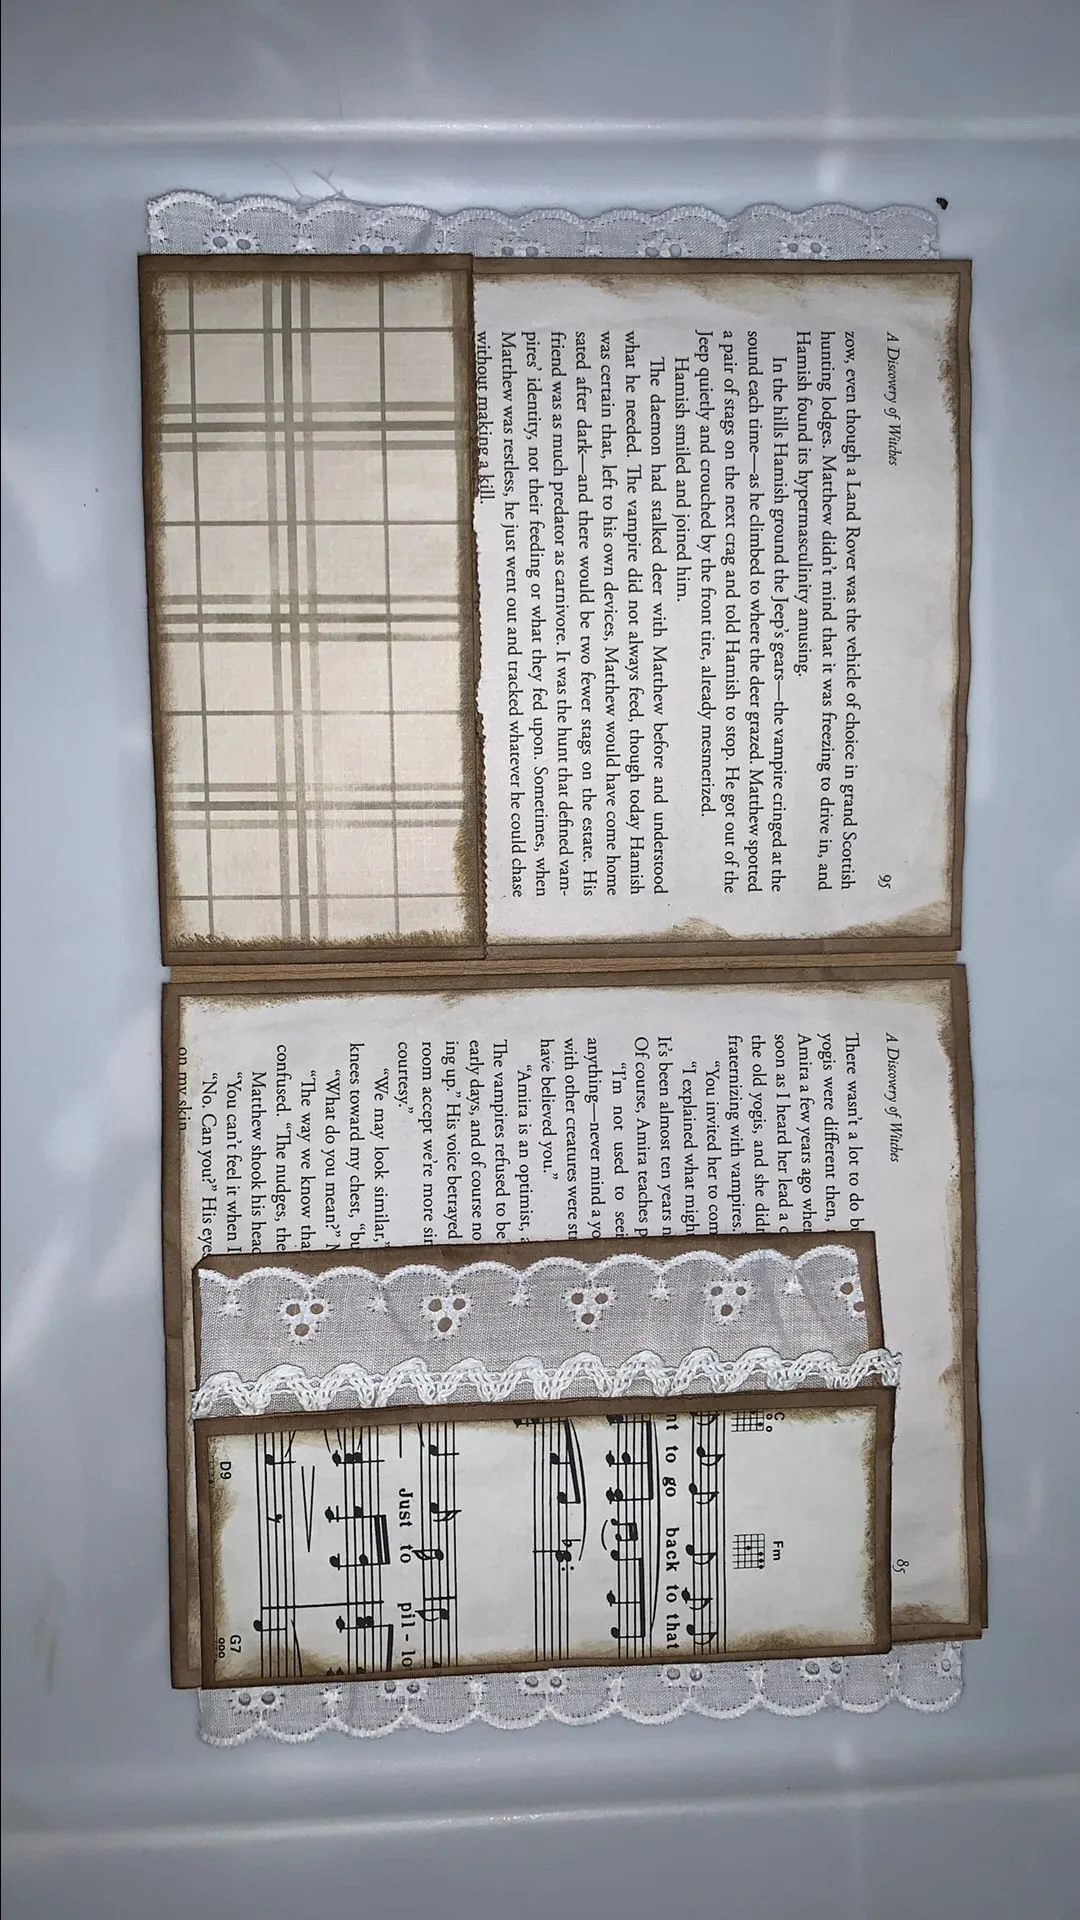 A Discovery of Witches 95
zow, even though a Land Rover was the vehicle of choice in grand Scottish
hunting lodges. Matthew didn't mind that it was freezing to drive in, and
Hamish found its hypermasculinity amusing.
In the hills Hamish ground the Jeep's gears—the vampire cringed at the
sound each time—as he climbed to where the deer grazed. Matthew spotted
a pair of stags on the next crag and told Hamish to stop. He got out of the
Jeep quietly and crouched by the front tire, already mesmerized.
Hamish smiled and joined him.
The daemon had stalked deer with Matthew before and understood
what he needed. The vampire did not always feed, though today Hamish
was certain that, left to his own devices, Matthew would have come home
sated after dark—and there would be two fewer stags on the estate. His
friend was as much predator as carnivore. It was the hunt that defined vam-
pires' identity, not their feeding or what they fed upon. Sometimes, when
Matthew was restless, he just went out and tracked whatever he could chase
without making a kill.
A Discovery of Witches 85
There wasn't a lot to do b
yogis were different then,
Amira a few years ago when
soon as I heard her lead a c
the old yogis, and she didn
fraternizing with vampires.
"You invited her to com
"I explained what migh
It's been almost ten years n
Of course, Amira teaches p
"I'm not used to seei
anything—never mind a yo
with other creatures were str
have believed you."
"Amira is an optimist, a
The vampires refused to be
early days, and of course no
ing up." His voice betrayed
room accept we're more sir
courtesy."
"We may look similar,"
knees toward my chest, "bu
"What do you mean?"
"The way we know tha
confused. "The nudges, the
Matthew shook his head
"You can't feel it when I
"No. Can you?" His eyes
on my skin.
C Fm
nt to go back to that
Just to pil - lo
D9 G7